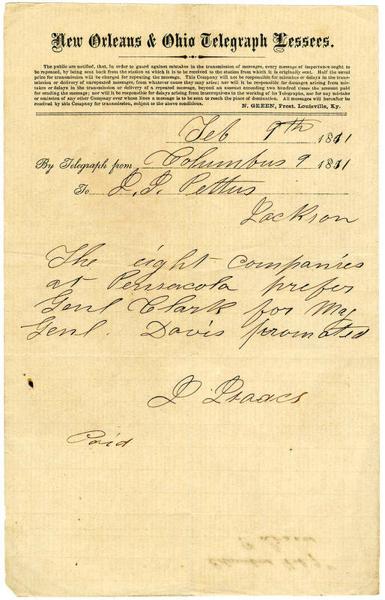 New Orleans & Ohio Telegraph Lessees.
The public are notified, that, in order to guard against mistakes in the transmission of messages, every message of importance ought to
be repeated, by being sent back from the station at which it is to be received to the station from which it is originally sent. Half the usual
price for transmission will be charged for repeating the message. This Company will not be responsible for mistakes or delays in the trans-
mission or delivery of unrepeated messages, from whatever cause they may arise; nor will it be responsible for damages arising from mis-
takes or delays in the transmission or delivery of a repeated message, beyond an amount exceeding two hundred times the amount paid
for sending the message; nor will it be responsible for delays arising from interruptions in the working of its Telegraphs, nor for any mistake
or omission of any other Company over whose lines a message is to be sent to reach the place of destination. All messages will hereafter be
received by this Company for transmission, subject to the above conditions.
N. GREEN, Prest. Louisville, Ky.
Feb 9th 1861
By Telegraph from Columbus 9 1861
To J. J. Pettus
Jackson
The eight companies
at Pensacola prefer
Genl Clark for Maj
Genl. Davis promoted
J Isaacs
Paid